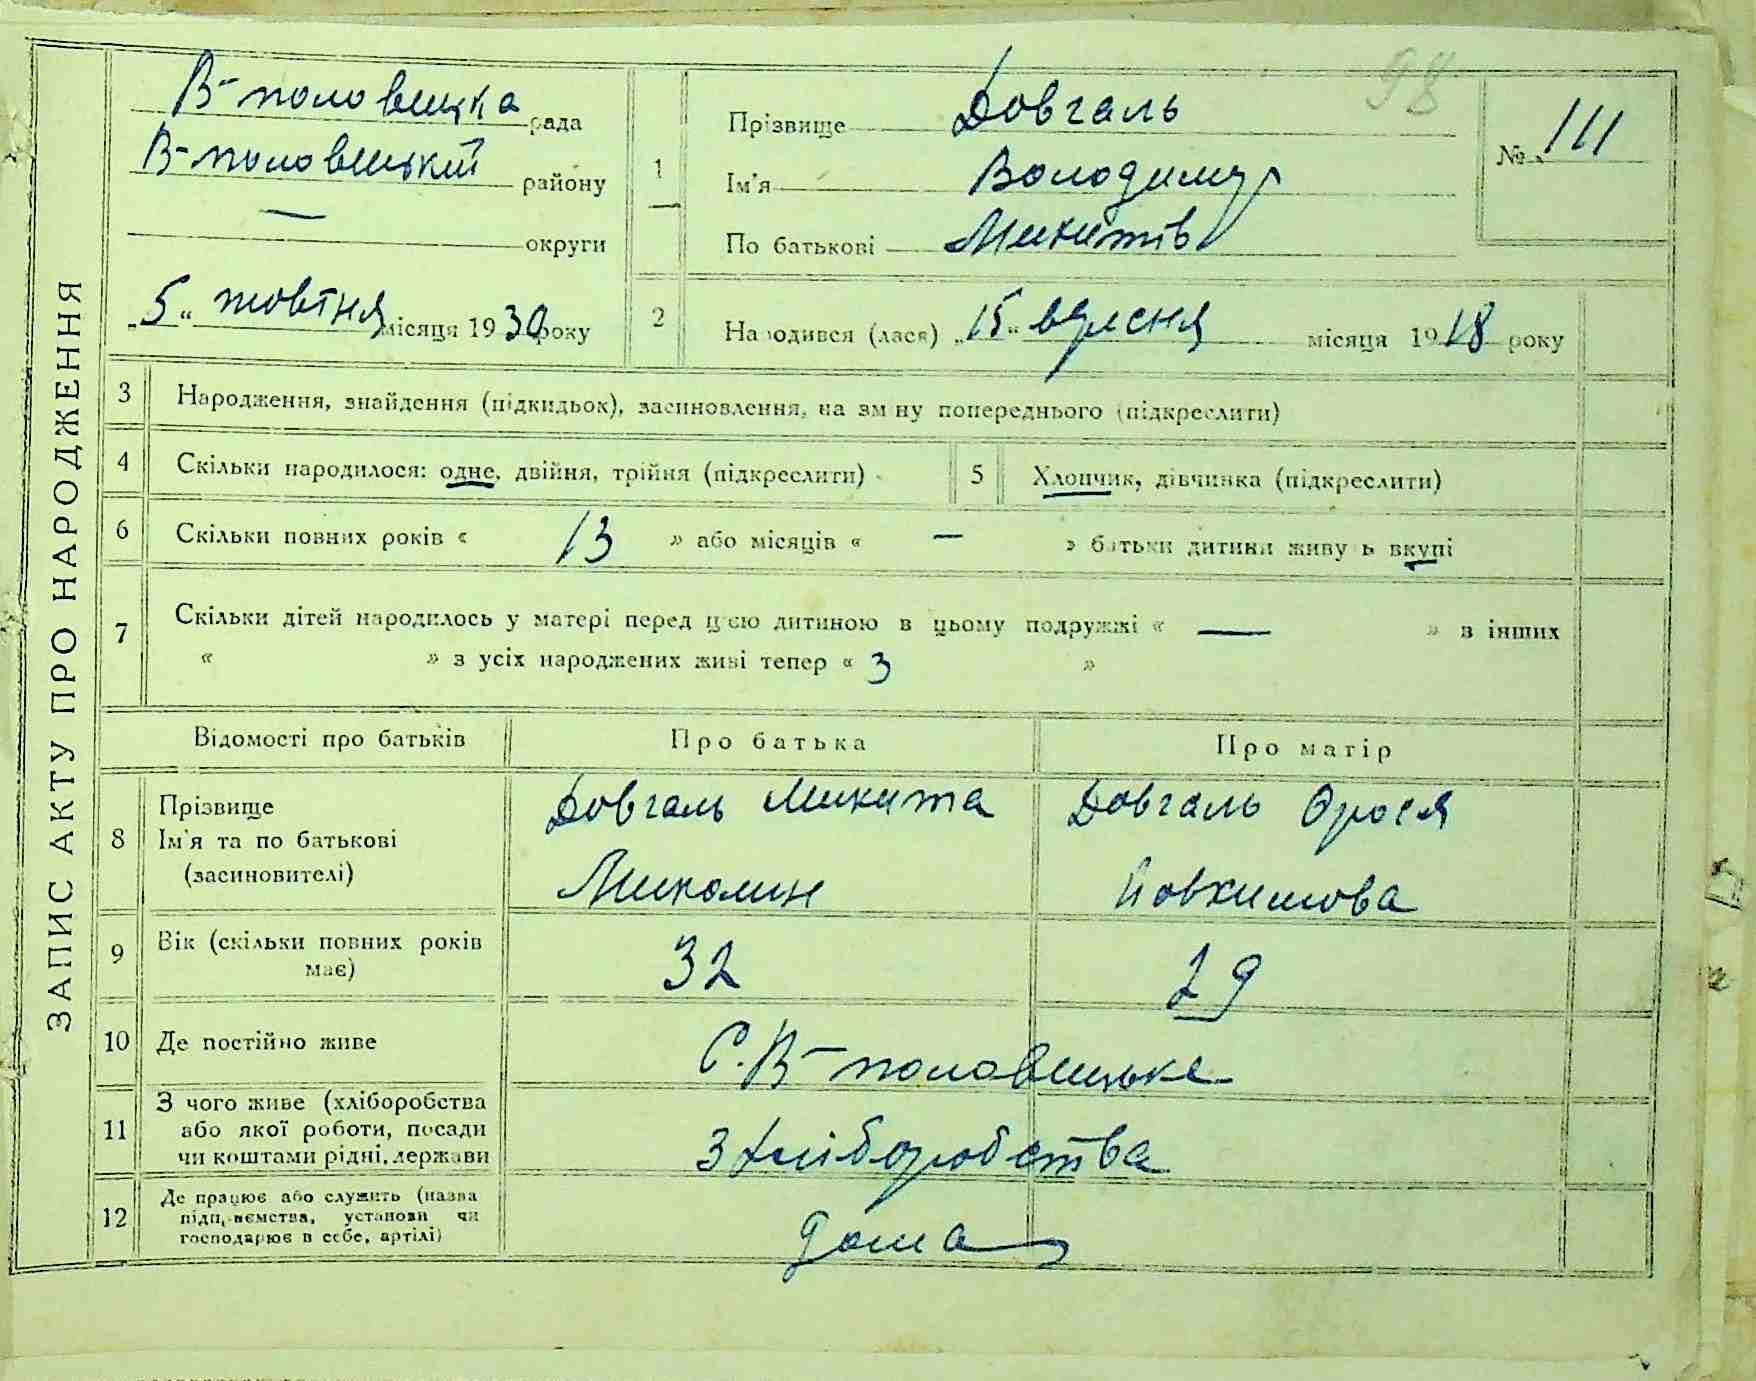 98
ЗАПИС АКТУ ПРО НАРОДЖЕННЯ
В-половецька рада
В-половецький району
— округи
„5“ жовтня місяця 1930 року
1
Прізвище Довгаль
Ім'я Володимир
По батькові Микитів
№ 111
2
Народився (лася) „15“ вересня місяця 1918 року
3 Народження, знайдення (підкидьок), засиновлення, на зміну попереднього (підкреслити)
4 Скільки народилося: одне, двійня, трійня (підкреслити)
5 Хлопчик, дівчинка (підкреслити)
6 Скільки повних років « 13 » або місяців « — » батьки дитини живуть вкупі
7 Скільки дітей народилось у матері перед цією дитиною в цьому подружжі « — » в інших
« » з усіх народжених живі тепер « 3 »
Відомості про батьків Про батька Про матір
8 Прізвище
Ім'я та по батькові
(засиновителі)
Довгаль Микита
Миколин
Довгаль Орося
Йовхимова
9 Вік (скільки повних років
має)
32 29
10 Де постійно живе С. В-половецьке
11 З чого живе (хліборобства
або якої роботи, посади
чи коштами рідні, держави
З хліборобства
12 Де працює або служить (назва
підприємства, установи чи
господарює в себе, артілі)
дома